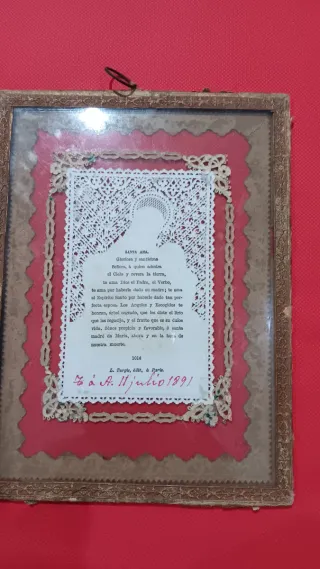 SANTA ANA.
Gloriosa y santísima
Señora, á quien admira
el Cielo y reverа la tierra,
te ama Dios el Padre, el Verbo,
te ama por haberle dado su madre; te ama
el Espíritu Santo por haberle dado tan per-
fecta esposa. Los Angeles y Escogidos te
honran, árbol sagrado, que les diste el fruto
que les regocija, y el fruto que es su
vida. Sénos propicia y favorable, ó santa
madre de María, ahora y en la hora de
nuestra muerte.
1016
L. Turgis, édit., á Paris.
T á A. 11 julio 1891